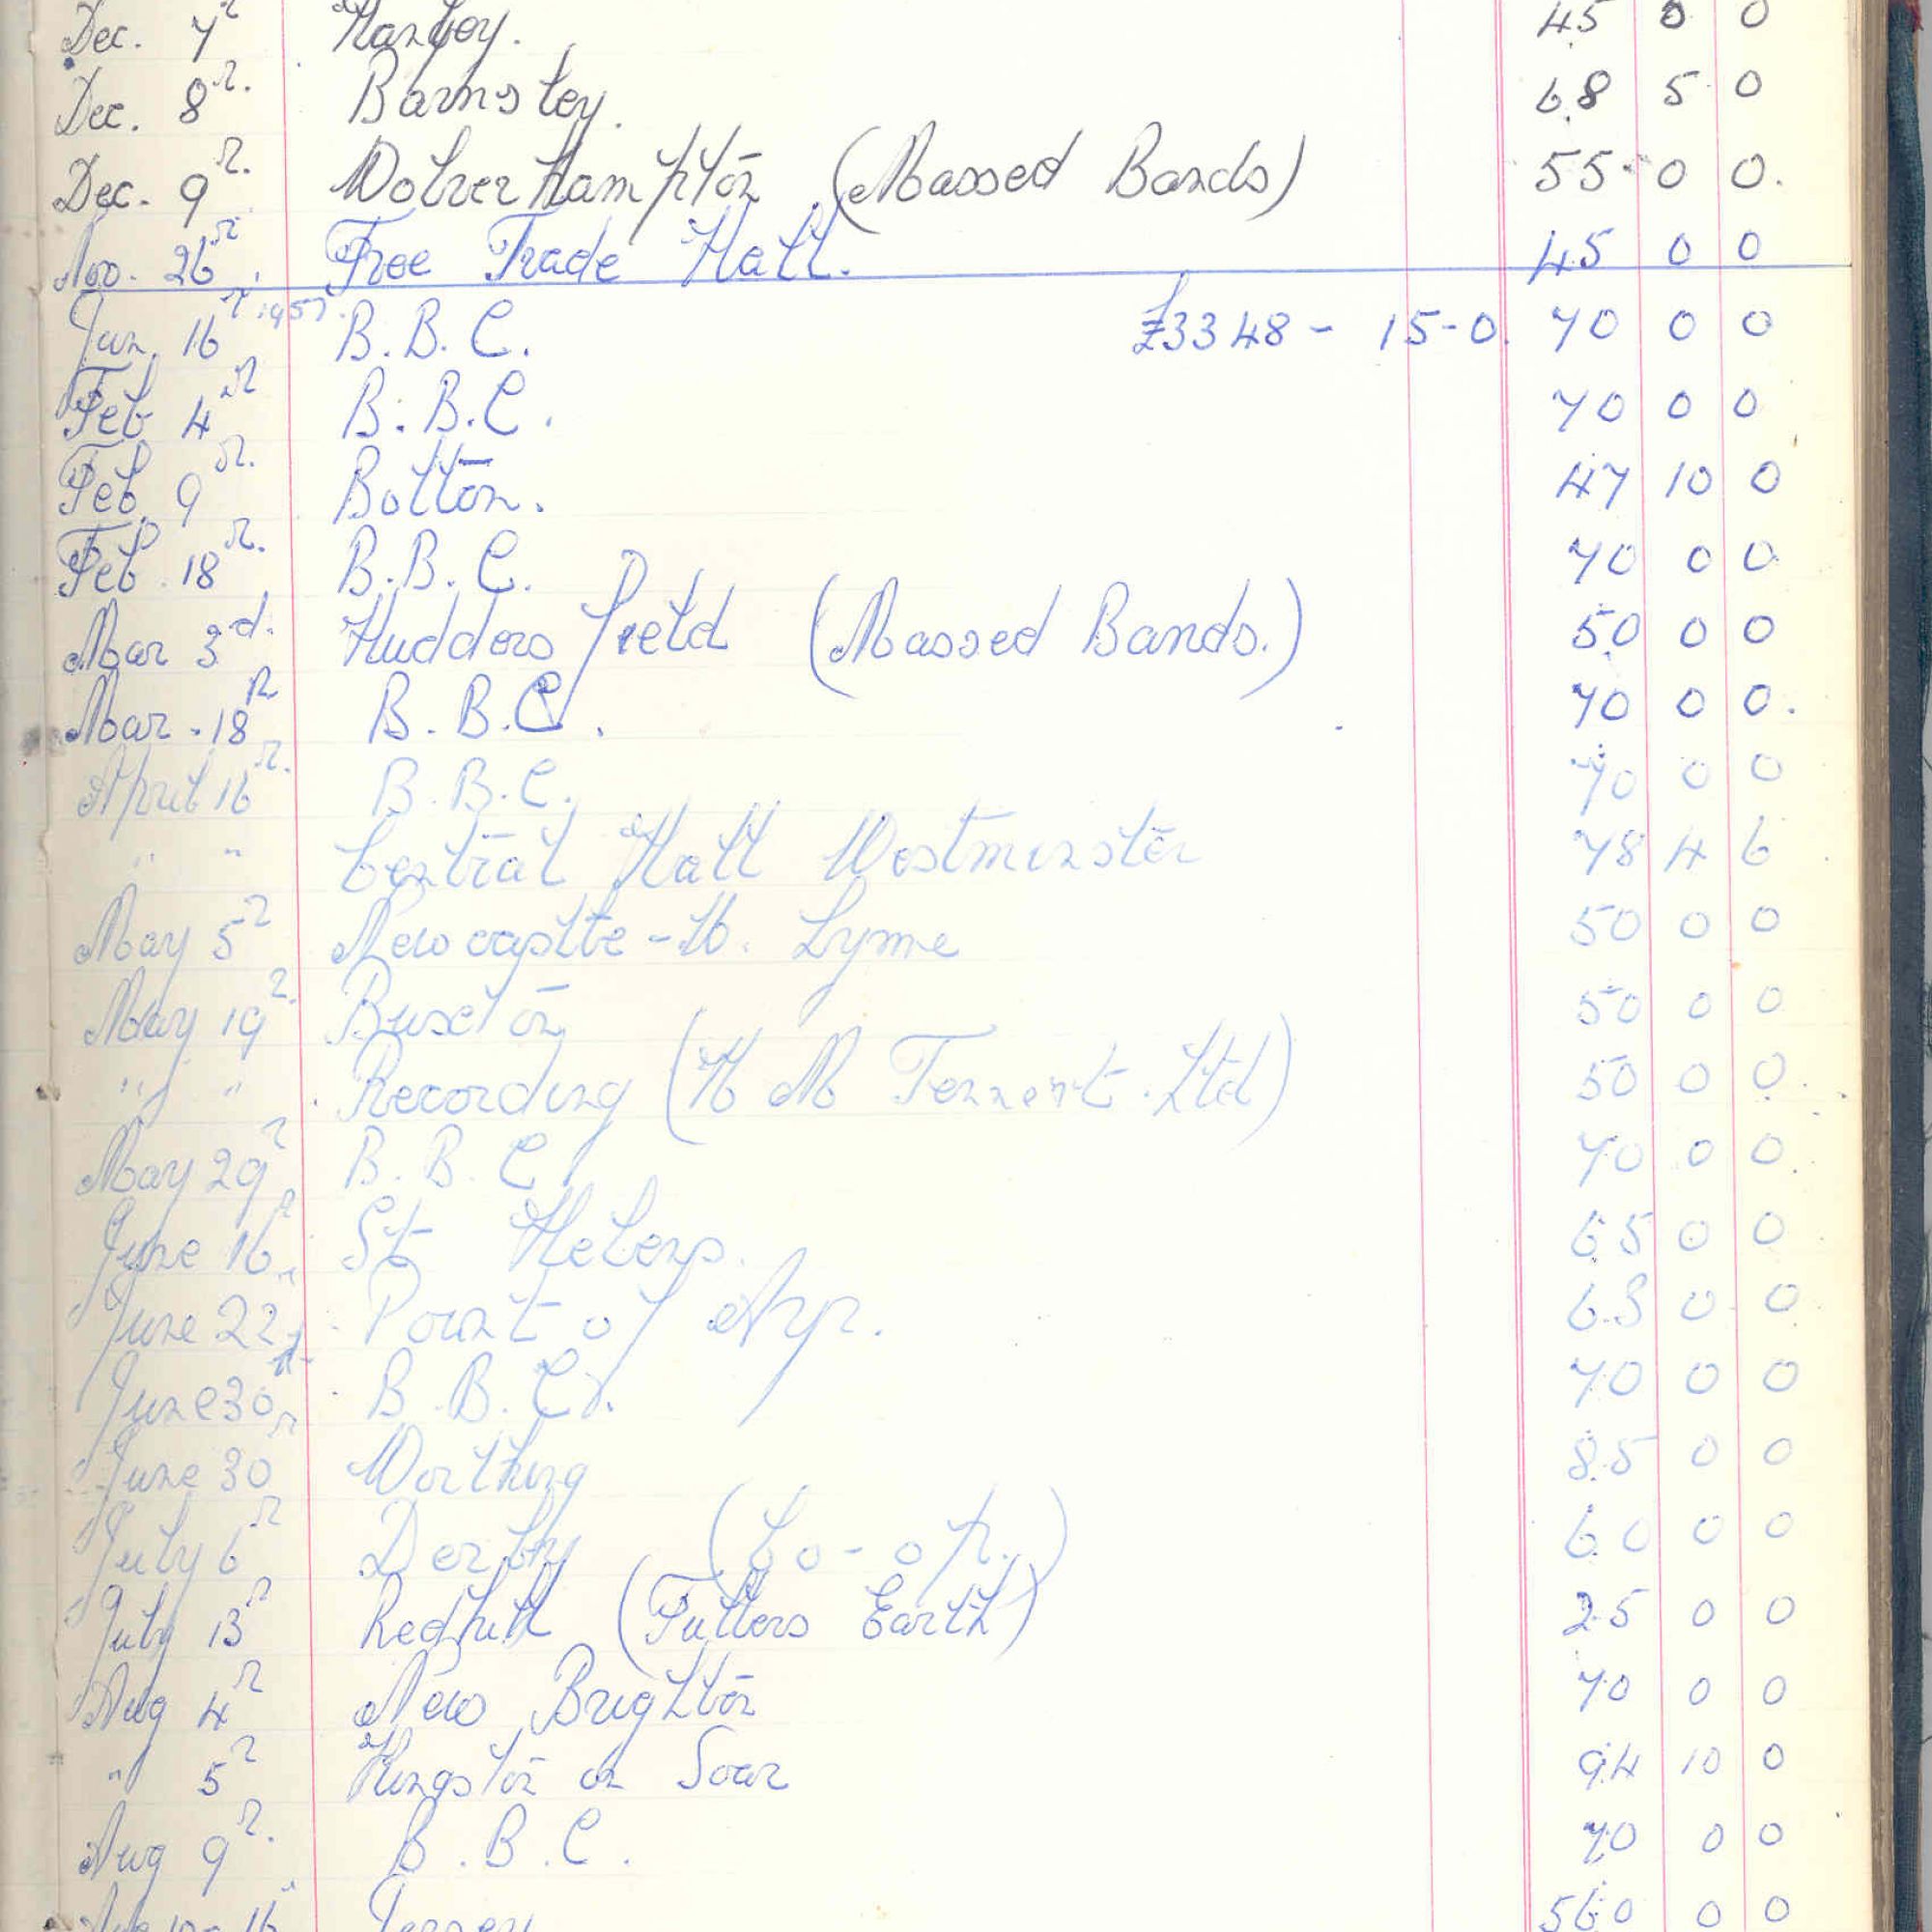 Dec. 7th Hanley. 45 0 0
Dec. 8th. Barnsley. 68 5 0
Dec. 9th. Wolverhampton (Massed Bands) 55 0 0.
Nov. 26th. Free Trade Hall. 45 0 0
Jan. 16th 1957. B.B.C. £3348 - 15-0. 70 0 0
Feb 4th B.B.C. 70 0 0
Feb. 9th. Bolton. 47 10 0
Feb. 18th. B.B.C. 70 0 0
Mar 3rd. Huddersfield (Massed Bands.) 50 0 0
Mar. 18th B.B.C. 70 0 0.
April 16th. B.B.C. 70 0 0
" " Central Hall Westminster 78 4 6
May 5th Newcastle-U. Lyme 50 0 0
May 19th. Buxton 50 0 0
" " Recording (H M Tennent Ltd) 50 0 0.
May 29th B.B.C. 70 0 0.
June 16th St Helens. 65 0 0
June 22nd Point of Ayr. 63 0 0
June 30th B.B.C. 70 0 0
June 30th Worthing 85 0 0
July 6th Derby (Co-op.) 60 0 0
July 13th Redhill (Fullers Earth) 25 0 0
Aug 4th New Brighton 70 0 0
" 5th Kingston on Soar 94 10 0
Aug 9th. B.B.C. 70 0 0
Aug 10-16 Jersey 560 0 0